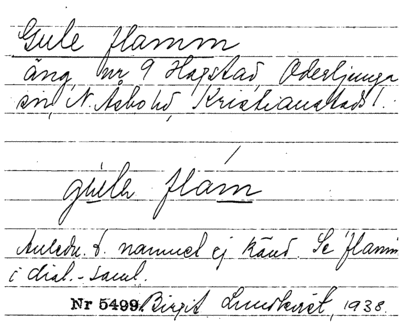 Gule flamm
äng, nr 9 Hagstad, Oderljunga
sn, N. Åsbo hd, Kristianstads l.
gu̲le flám̲
Anledn. t. namnet ej känd. Se flamm
i dial.-saml.
Nr 5499. Birgit Lundkvist, 1938.